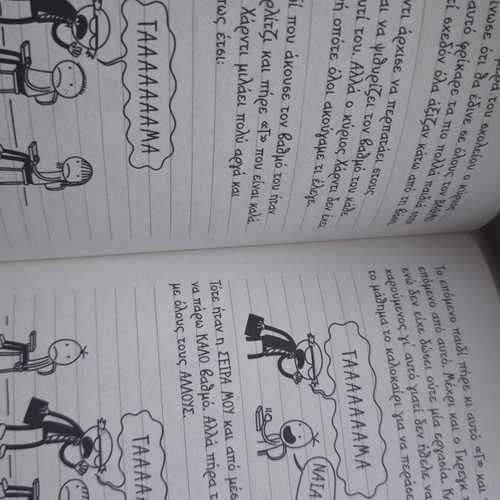 μέρα του σχολείου ο κύριος
άνωσε ότι θα έδινε σε όλους τον
αυτό φρίκαρε τα πιο πολλά παιδιά στην
τί σχεδόν όλα άξιζαν κάτω από τη βάση
ντι άρχισε να περπατάει στους
αι να ψιθυρίζει τον βαθμό του κάθε
υτί του. Αλλά ο κύριος Χάρντι δεν έχει
ή οπότε όλοι ακούγαμε τι έλεγε.
δί που άκουσε τον βαθμό του ήταν
ρλίτζι και πήρε «Γ» που είναι καλά.
Χάρντι μιλάει πολύ αργά και
πως έτσι:
ΓΑΑΑΑΑΑΑΜΑ
Το επόμενο παιδί πήρε κι αυτό «Γ» και
επόμενο από αυτό. Μέχρι και ο Γκρεγκ
ενώ δεν είχε δώσει ούτε μία εργασία. Κ
χαρούμενος γι' αυτό γιατί δεν ήθελε ν
το μάθημα το καλοκαίρι για να περάσε
ΓΑΑΑΑΑΑΑΜΑ
ΝΑΙ
Τότε ήταν η ΣΕΙΡΑ ΜΟΥ και από μέσ
να πάρω ΚΑΛΟ βαθμό. Αλλά πήρα τ
με όλους τους ΑΛΛΟΥΣ.
ΓΑΑΑΑ